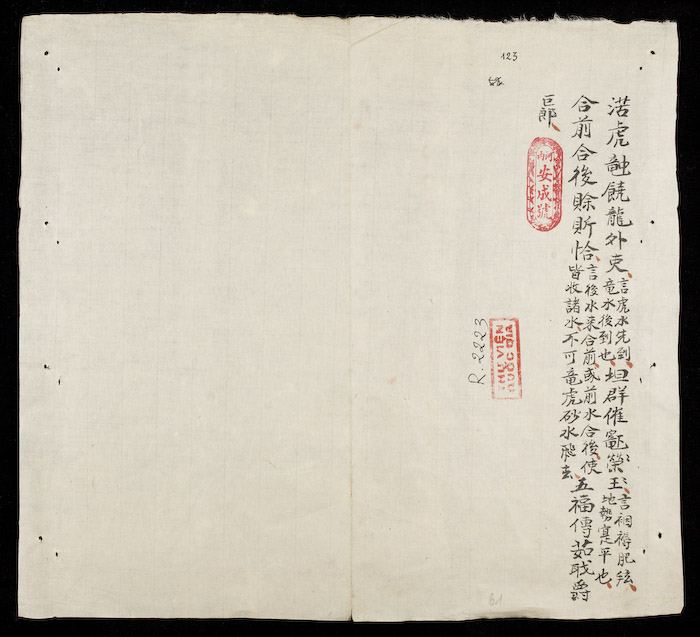 渃虎饒龍外吏言虎水先到
竜水後到也坦群催榮〻王〻言裀褥肥絃
地勢寔平也
合前合後賒𧵆恰言後水来合前或前水合後使
皆收諸水不可竜虎砂水飛去五福傳茹爵
巨郎
河內
安成號
123
R.2223
THƯ VIỆN
QUỐC GIA